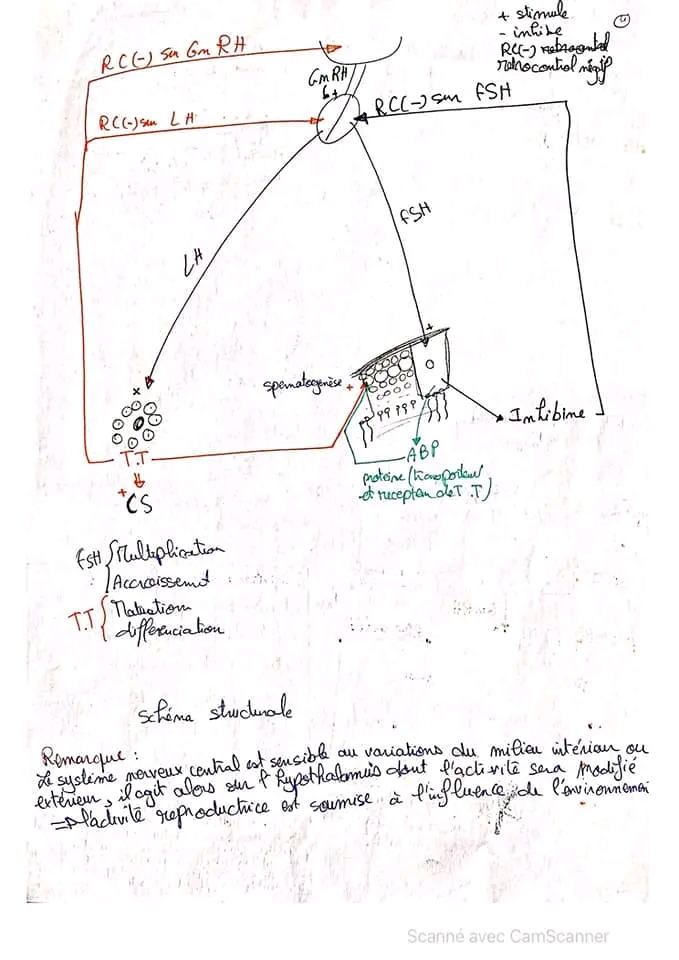 + stimule
- inhibe
RC(-)
retrocontrol négatif
4
RC(-) sur GmRH
GmRH
+
RC(-) sur FSH
RC(-) sur LH
FSH
LH
+
x
spermatogenèse +
Inhibine
ABP
T.T
proteine (transporteur
et recepteur de T.T)
+
CS
FSH { Multiplication
Accroissement
T.T { Maturation
différenciation
Schéma structurale
Remarque :
Le système nerveux central est sensible au variations du milieu intérieur ou
extérieur, il agit alors sur l'hypothalamus dont l'activité sera modifié
=> l'activité reproductrice est soumise à l'influence de l'environnement
Scanné avec CamScanner